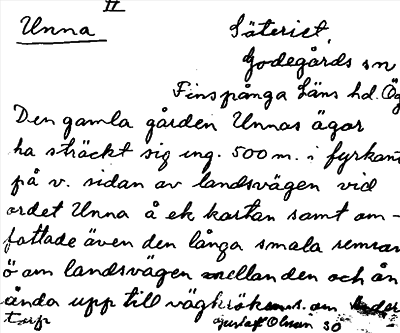 II
Unna
Säteriet
Godegårds sn
Finspånga Läns hd. Ög
Den gamla gården Unnas ägor
ha sträckt sig ung. 500 m. i fyrkant
på v. sidan av landsvägen vid
ordet Unna å ek kartan samt om-
fattade även den långa smala remsan
ö om landsvägen mellan den och ån
ända upp till vägkröken om
torp
Gustaf Olsson 30